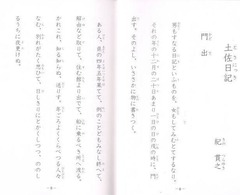 土佐日記
紀 貫之
門出
男もすなる日記といふものを、女もしてみむとてするなり。
それの年の十二月の二十日あまり一日の日の戌の時に、門
出す。そのよし、いささかに物に書きつく。
ある人、県の四年五年果てて、例のことどもみなし終へて、
解由など取りて、住む館より出でて、船に乗るべき所へ渡る。
かれこれ、知る知らぬ、送りす。年ごろよくくらべつる人々
なむ、別れがたく思ひて、日しきりにとかくしつつ、ののし
るうちに夜更けぬ。